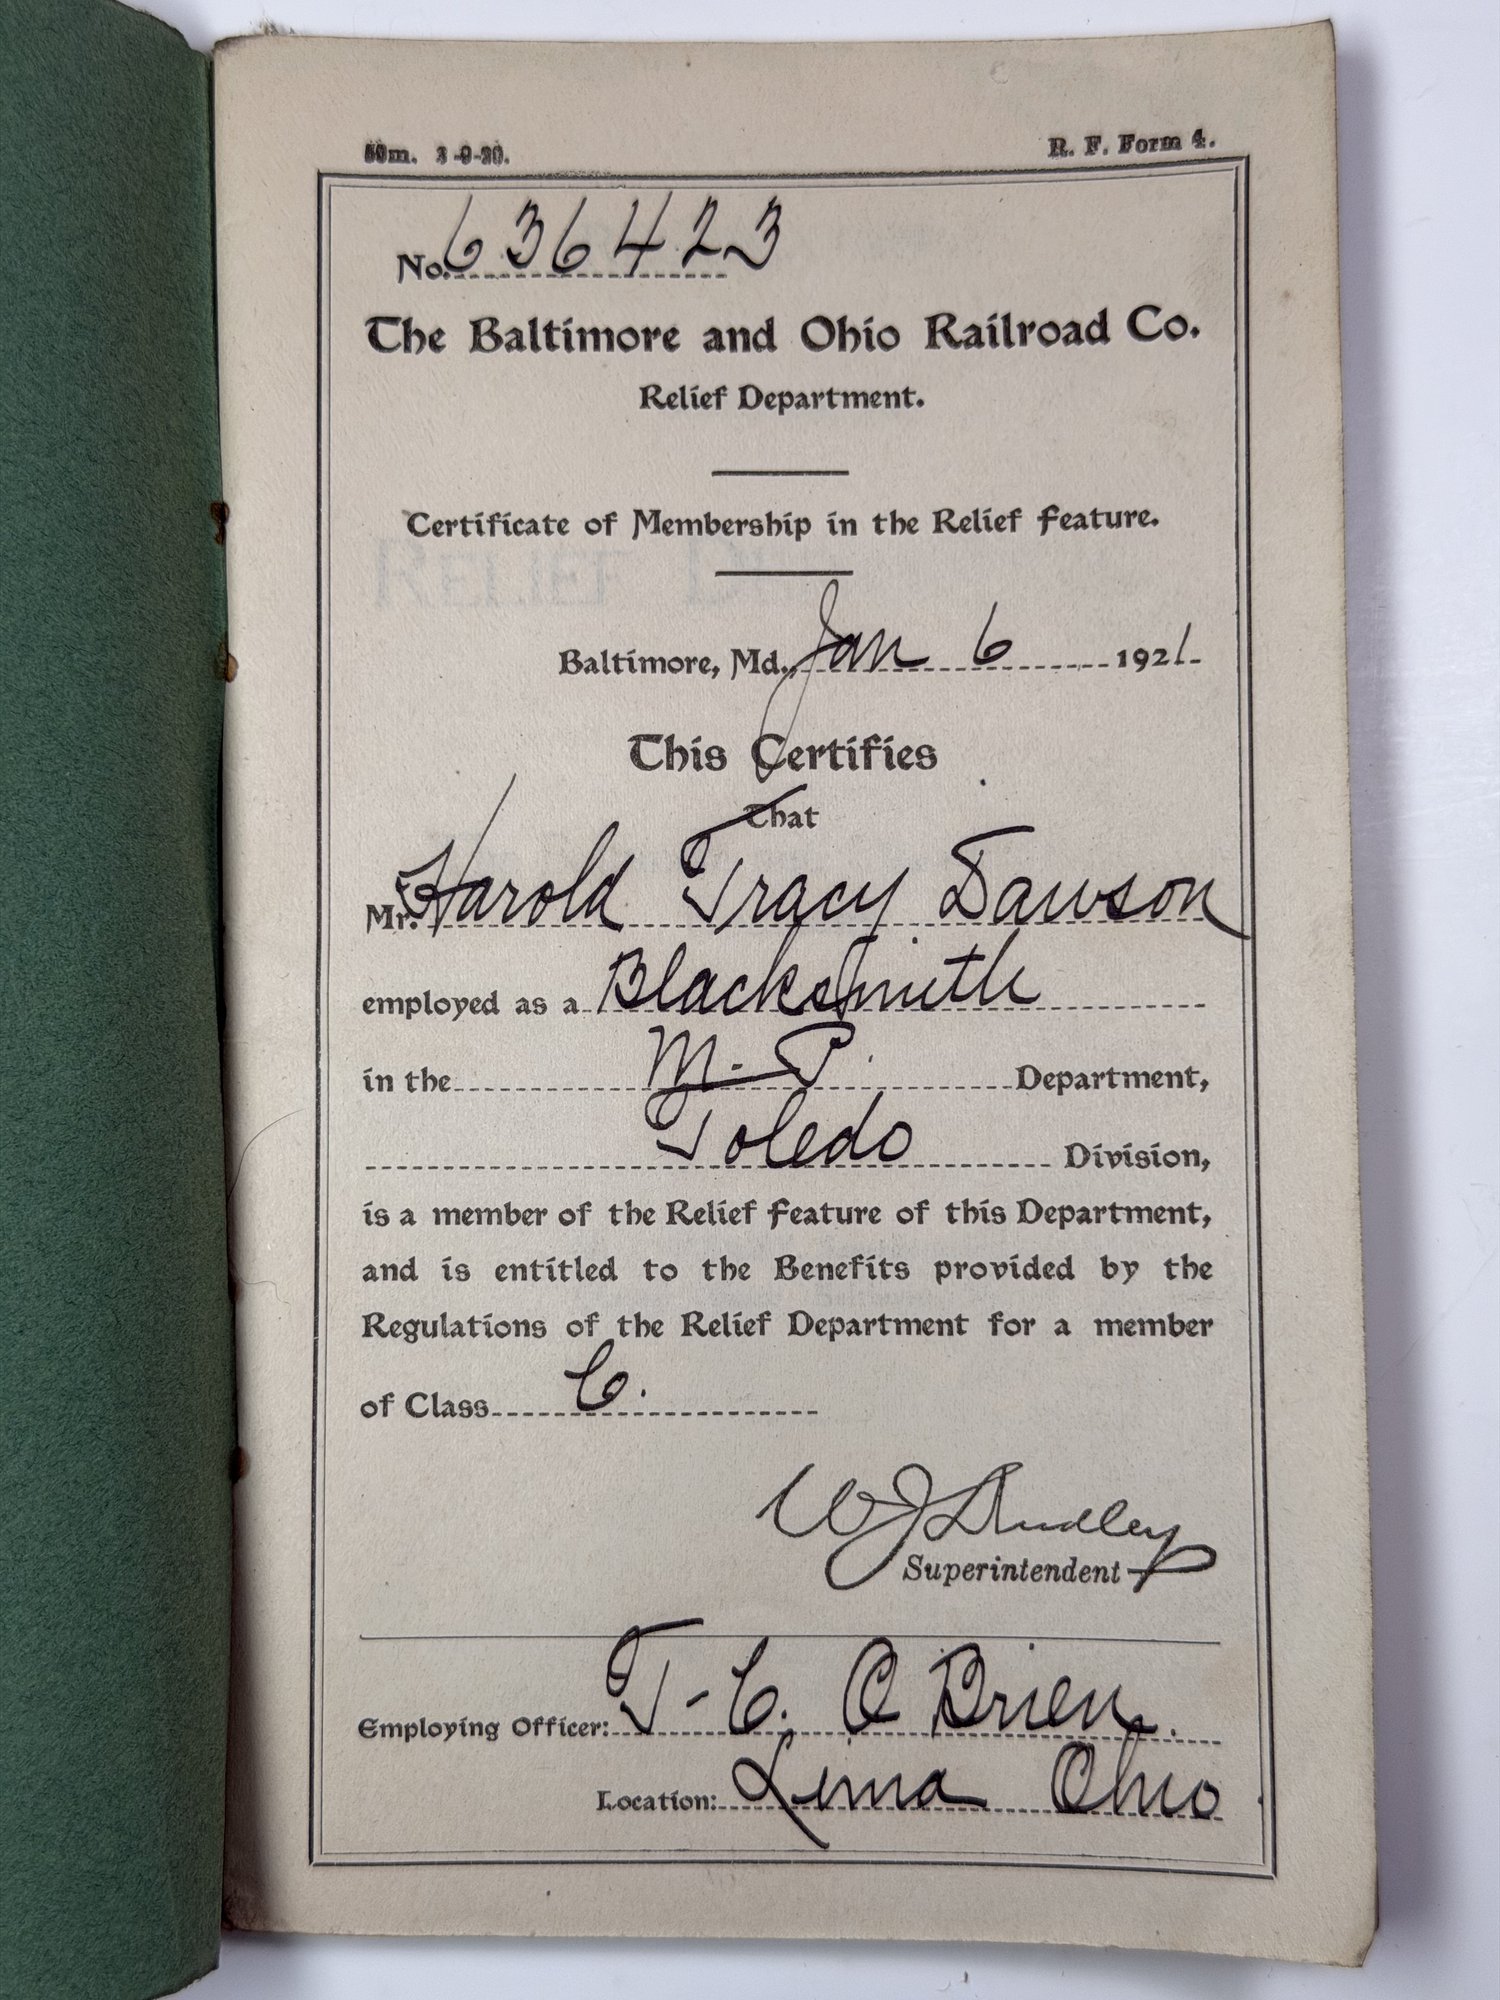 50m. 3-9-20. R. F. Form 4.
No. 636423
The Baltimore and Ohio Railroad Co.
Relief Department.
Certificate of Membership in the Relief Feature.
Baltimore, Md., Jan 6 1921
This Certifies
That
Mr. Harold Tracy Dawson
employed as a Blacksmith
in the M. P. Department,
Toledo Division,
is a member of the Relief Feature of this Department,
and is entitled to the Benefits provided by the
Regulations of the Relief Department for a member
of Class C.
W J Dudley
Superintendent
Employing Officer: T-C. O Brien.
Location: Lima Ohio